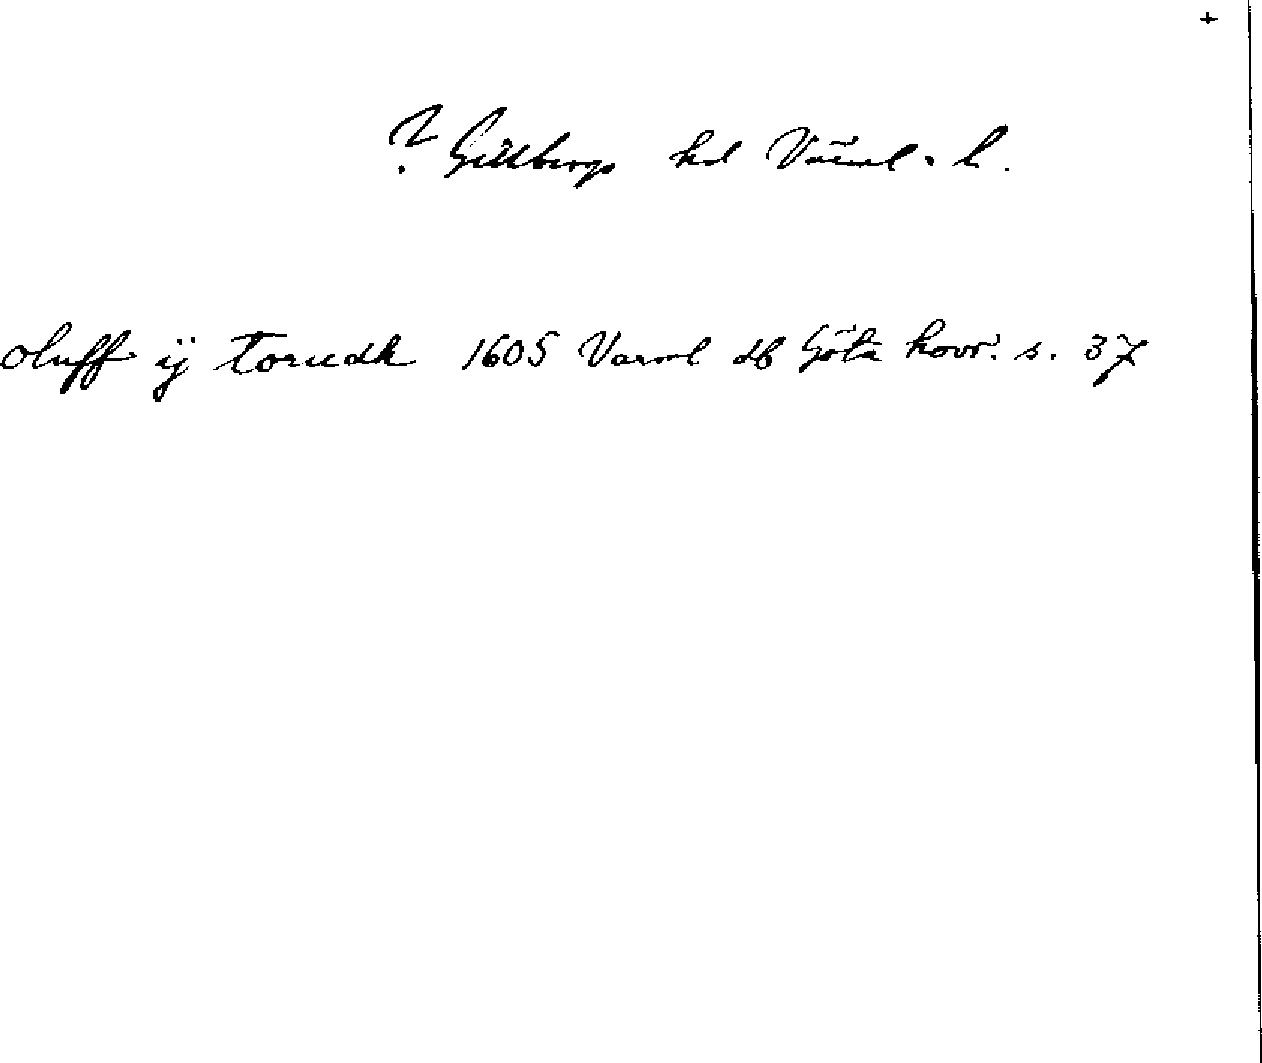 +
? Gillbergs hd Värml. l.
oluff ÿ torudh 1605 Värml db Göta hovr. s. 37